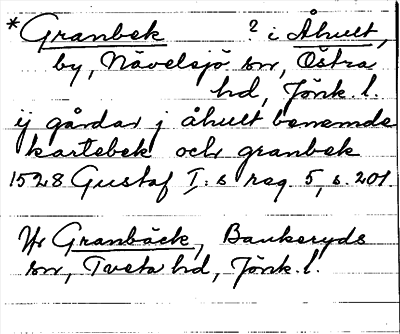 *Granbek ? i Åhult,
by, Nävelsjö sn, Östra
hd, Jönk. l.
ij gårdar j åhult benemde
kartebek och granbek
1528 Gustaf I:s reg. 5, s. 201.
Jfr Granbäck, Bankeryds
sn, Tveta hd, Jönk. l.